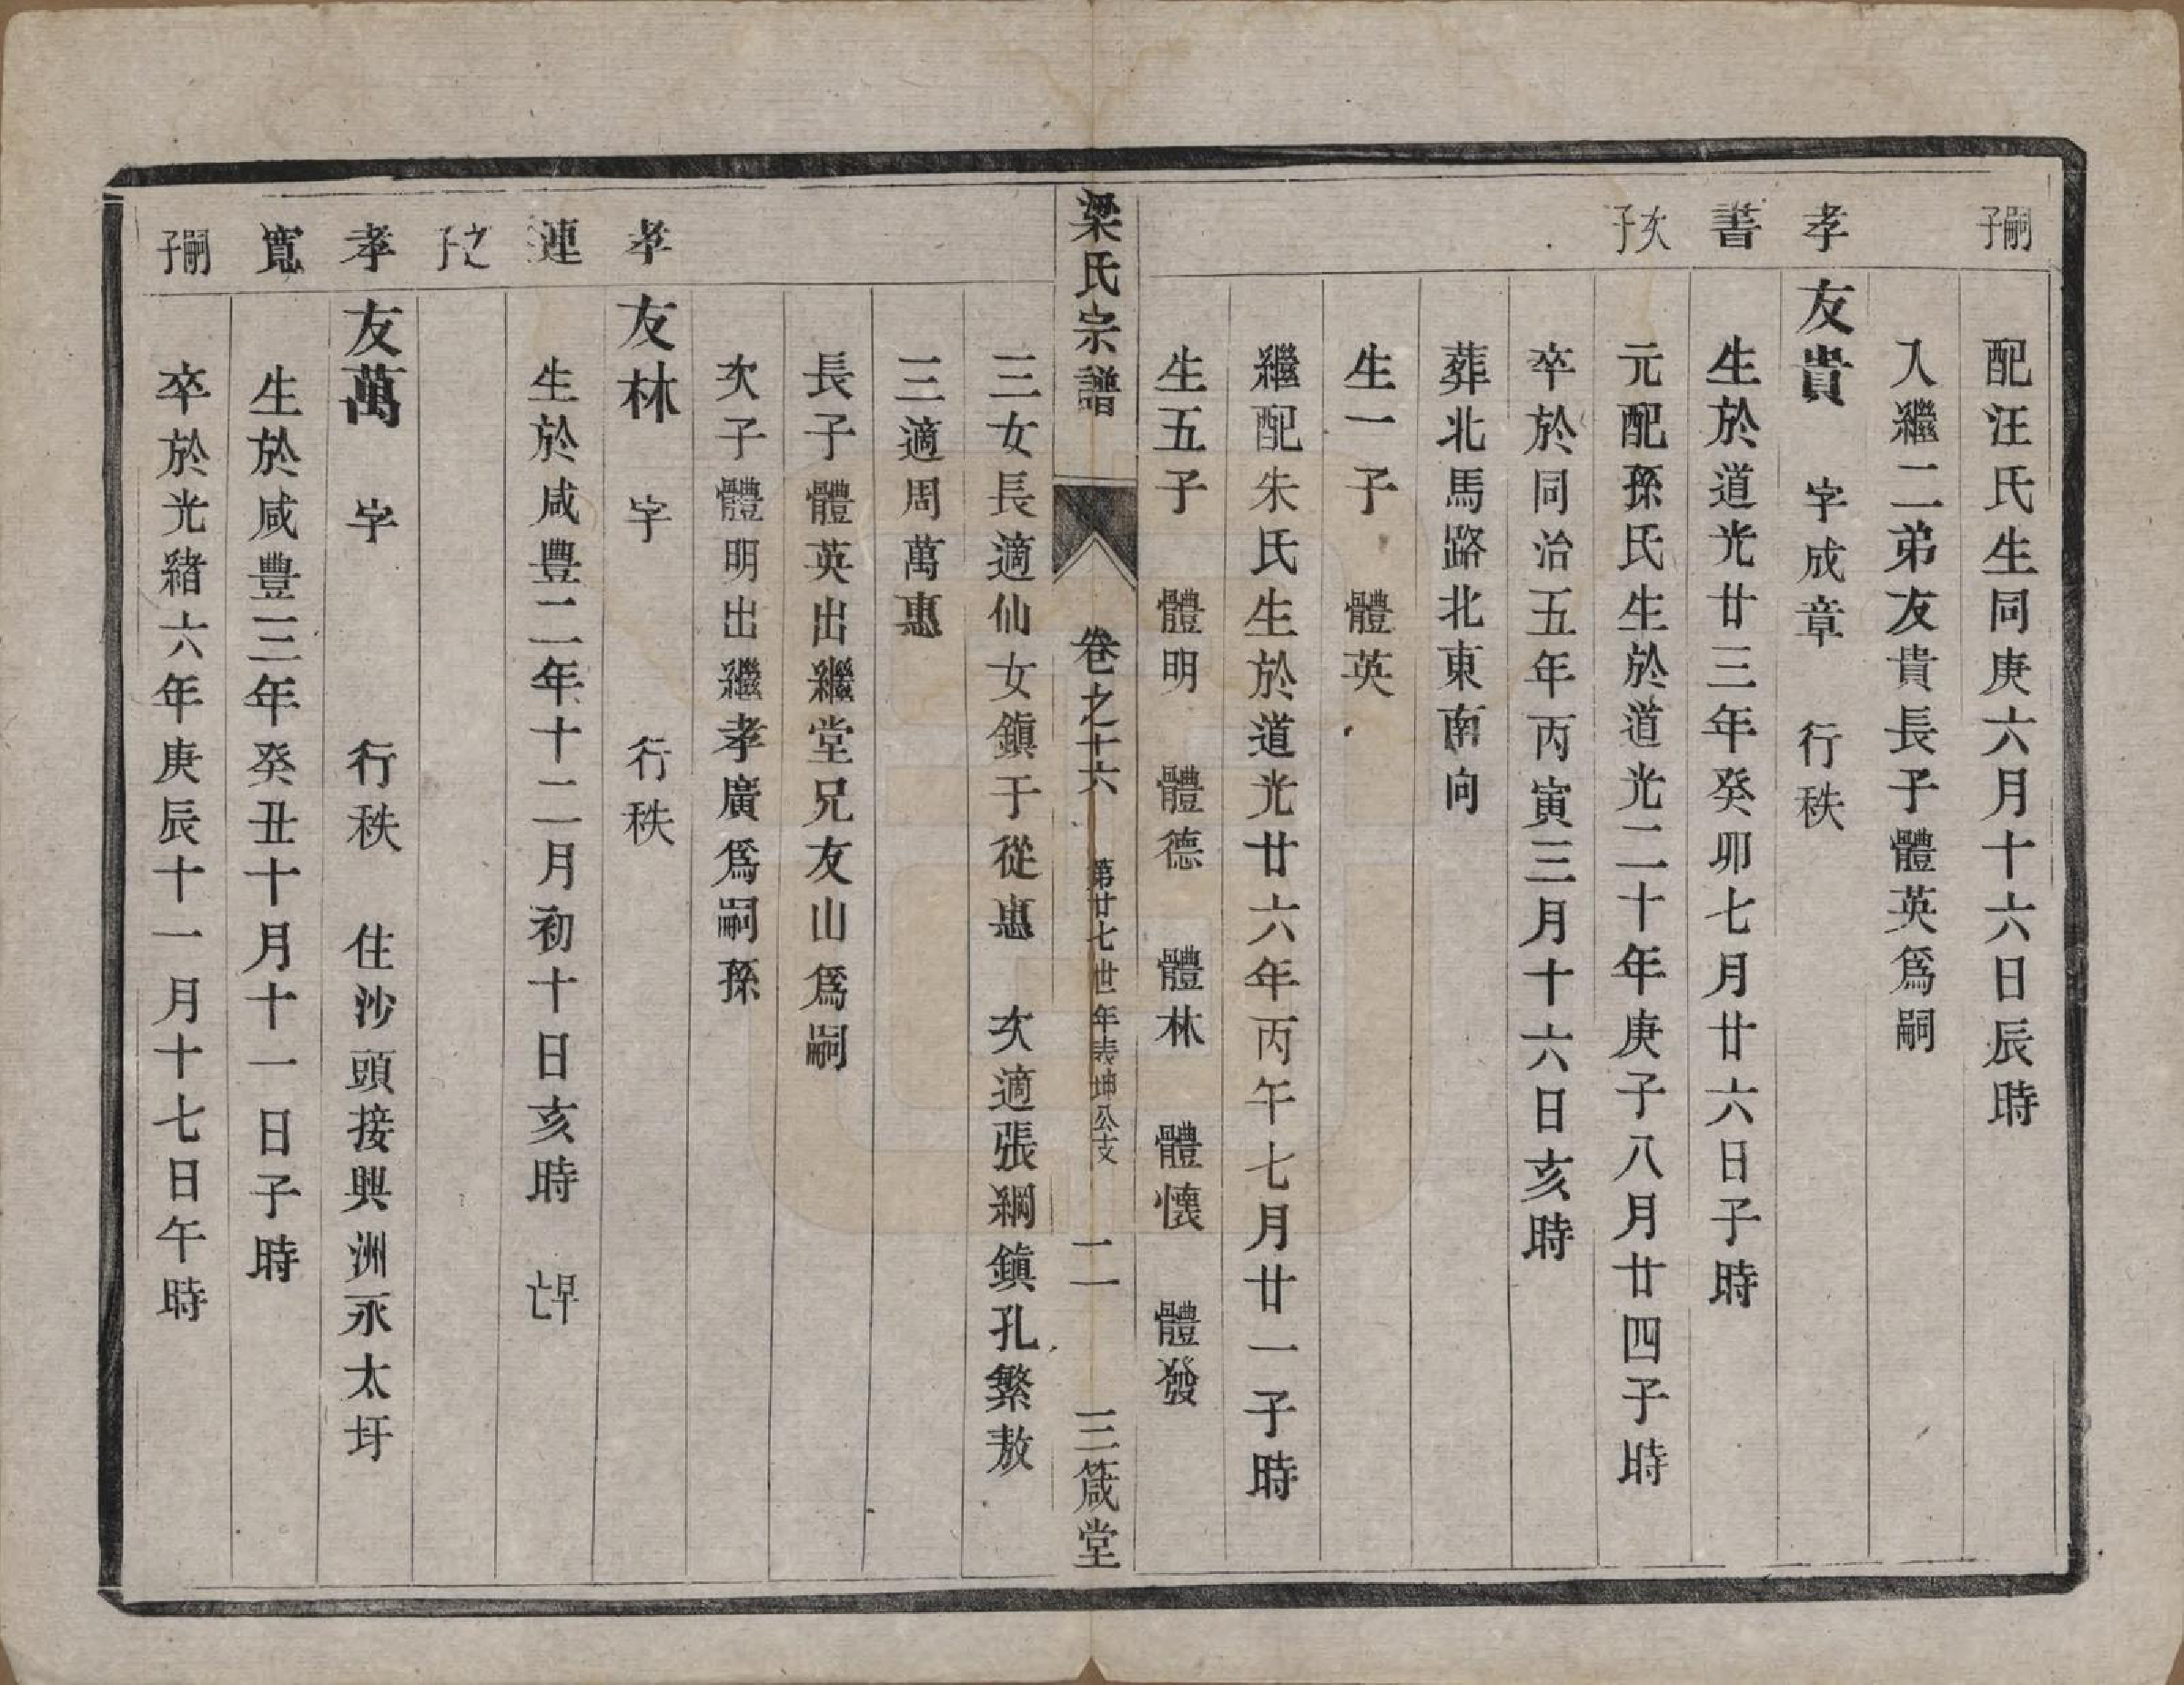 嗣子　配汪氏生同庚六月十六日辰時
入繼二弟友貴長子體英爲嗣
孝　友貴　字成章　行秩
書　生於道光廿三年癸卯七月廿六日子時
次子　元配孫氏生於道光二十年庚子八月廿四子時
卒於同治五年丙寅三月十六日亥時
葬北馬路北東南向
生一子　體英
繼配朱氏生於道光廿六年丙午七月廿一子時
生五子　體明　體德　體林　體懷　體發
梁氏宗譜　卷之十六　第廿七世年表坤公支　二　三箴堂
三女長適仙女鎮于從惠　次適張綱鎮孔繁敖
三適周萬惠
長子體英出繼堂兄友山爲嗣
次子體明出繼孝廣爲嗣孫
孝　友林　字　行秩
連　生於咸豐二年十二月初十日亥時　早亡
之子
孝　友萬　字　行秩　住沙頭接興洲永太圩
寬　生於咸豐三年癸丑十月十一日子時
嗣子　卒於光緒六年庚辰十一月十七日午時